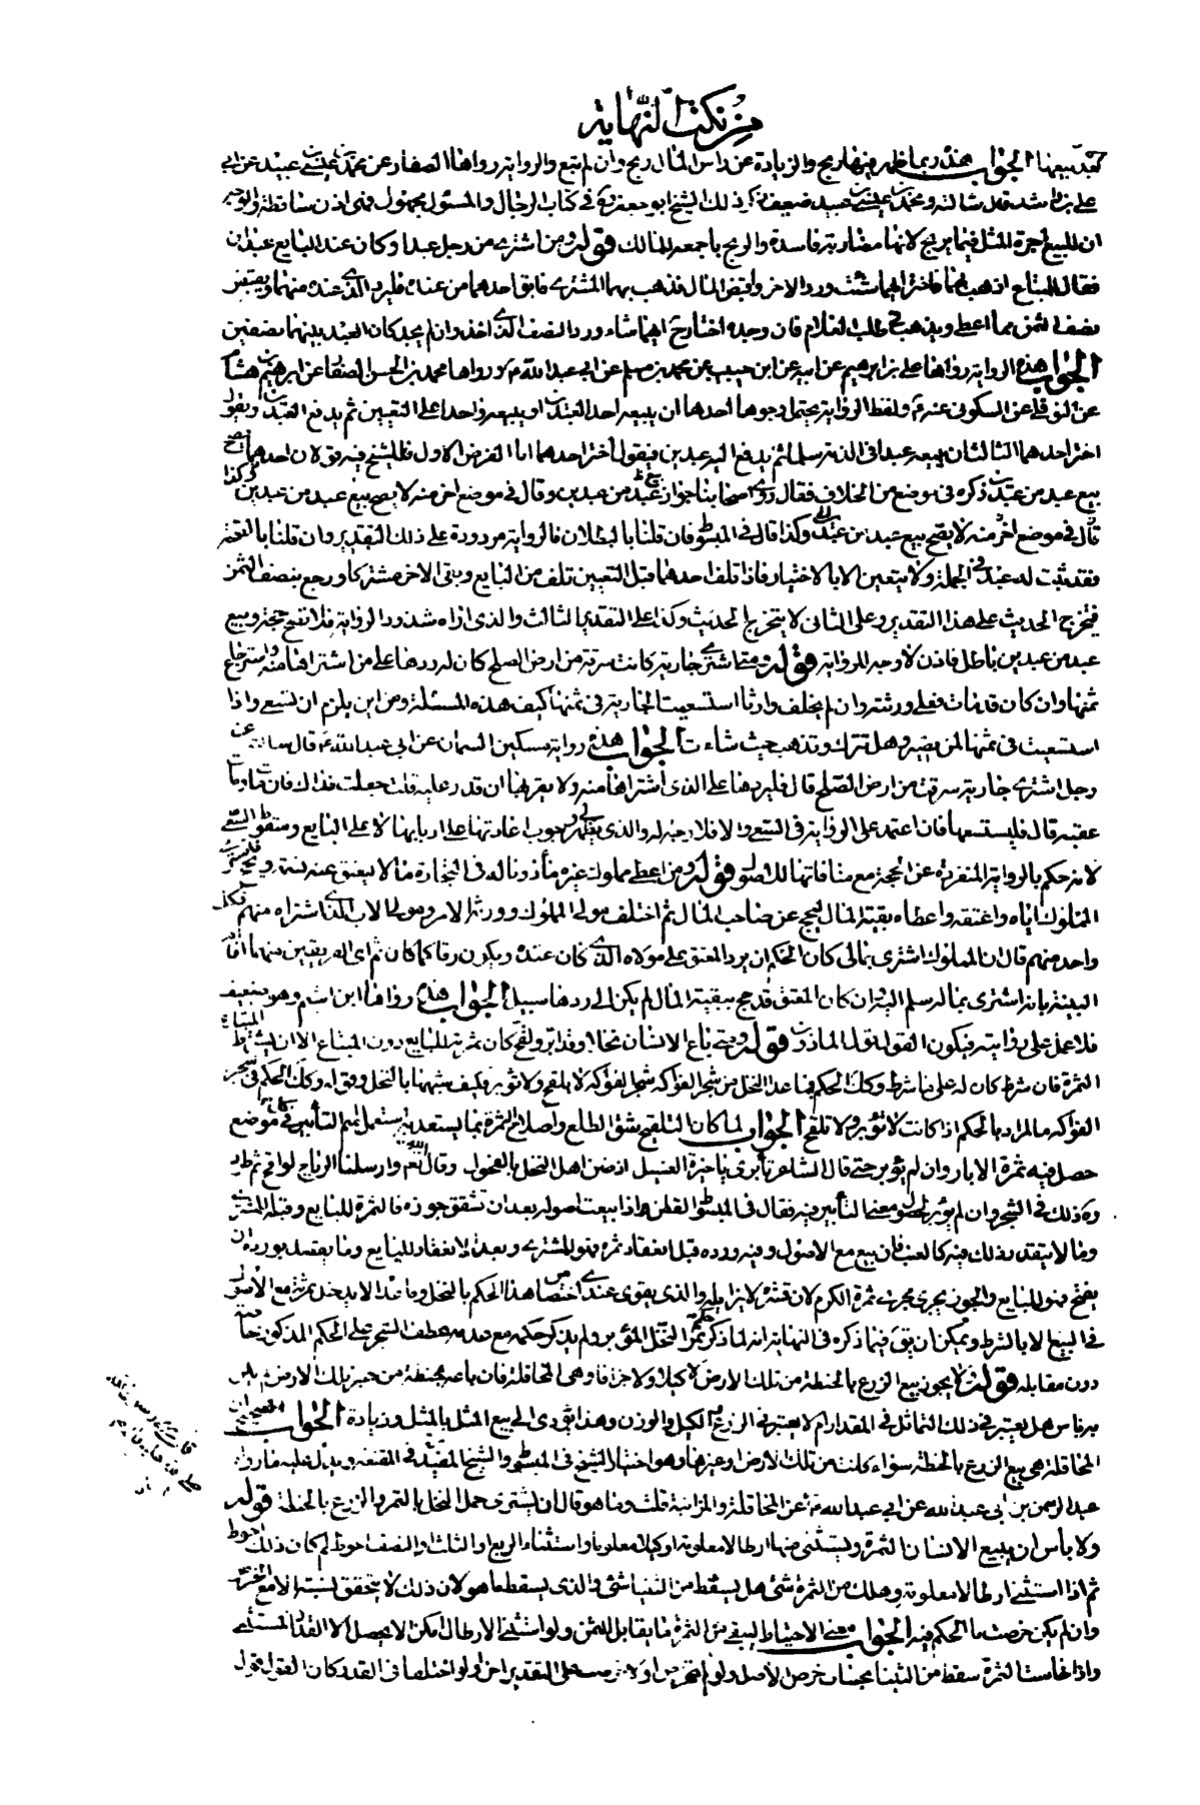 من نكت النهاية
كيف يبيعها الجواب هذه ربما ظهر فيها ربح والزيادة عن راس المال ربح وان لم تبع والرواية رواها الصفار عن محمد بن عيسى بن عبيد عن ابي
علي بن راشد قال سالته ومحمد بن عيسى بن عبيد ضعيف ذكر ذلك الشيخ ابو جعفر في كتاب الرجال والمسئول مجهول فهي اذن ساقطة والوجه
ان للبيع اجرة المثل فيما يربح لانها مضاربة فاسدة والربح باجمعه للمالك قوله ومن اشترى من رجل عبدا وكان عند البايع عبدان
فقال للمبتاع اذهب بهما فاختر ايهما شئت ورد الاخر وقبض المال فذهب بهما المشتري فابق احدهما من عنده فليرد الذي عنده منهما ويقبض
نصف الثمن مما اعطى ويذهب في طلب الغلام فان وجده اختار ح ايهما شاء ورد النصف الذي اخذ وان لم يجد كان العبد بينهما نصفين
الجواب هذه الرواية رواها علي بن ابرهيم عن ابيه عن ابن حبيب عن محمد بن مسلم عن ابي عبد الله ع ورواها محمد بن الحسن الصفار عن ابرهيم بن هشام
عن النوفلي عن السكوني عنه ع ولفظ الرواية يحتمل وجوها احدها ان يبيعه احد العبدين او يبيعه واحدا على التعيين ثم يدفع العبدين ويقول
اختر احدهما الثالث ان يبيعه عبدا في الذمة سلما ثم يدفع اليه عبدين فيقول اختر احدهما اما الفرض الاول فللشيخ فيه قولان احدهما يصح
بيع عبد من عبدين ذكره في موضع من الخلاف فقال روى اصحابنا جواز بيع عبد من عبدين وقال في موضع اخر منه لا يصح بيع عبد من عبدين وكذا
قال في موضع اخر منه لا يصح بيع عبد من عبدين وكذا قال في المبسوط فان قلنا بالبطلان فالرواية مردودة على ذلك التقدير وان قلنا بالصحة
فقد ثبت له عبد في الجملة ولا يتعين الا بالاختيار فاذا تلف احدهما قبل التعيين تلف من البايع وبقى الاخر مشتركا ورجع بنصف الثمن
فيخرج الحديث على هذا التقدير وعلى الثاني لا يتخرج الحديث وكذا على التقدير الثالث والذي اراه شذوذ الرواية فلا تصح حجة وبيع
عبد من عبدين باطل فاذن لا وجه للرواية قوله ومتى اشترى جارية كانت سرقة من ارض الصلح كان له ردها على من اشتراها منه واسترجاع
ثمنها وان كان قد مات فعلى ورثته وان لم يخلف وارثا استسعيت الجارية في ثمنها كيف هذه المسئلة ومن اين يلزم ان تسعى واذا
استسعيت في ثمنها لمن يصير وهل تترك وتذهب حيث شاءت الجواب هذه رواية مسكين السمان عن ابي عبد الله ع قال سالته عن
رجل اشترى جارية سرقت من ارض الصلح قال فليردها على الذي اشتراها منه ولا يقربها ان قدر عليه قلت جعلت فداك فان مات ومات
عقبه قال فليستسعها فان اعتمد على الرواية في السعي والا فلا وجه له والذي يظهر لي وجوب اعادتها على اربابها لا على البايع وسقوط السعي
لانه حكم بالرواية المنفردة عن الحجة مع منافاتها للاصول قوله ومن اعطى مملوك غيره مأذونا له في التجارة مالا ليعتق عنه نسمة ويحج فاشترى
المملوك اباه واعتقه واعطاه بقية المال ليحج عن صاحب المال ثم اختلف مولى المملوك وورثة الامر ومولى الاب الذي اشتراه منهم فكل
واحد منهم قال ان المملوك اشترى بمالي كان الحكم ان يرد المعتق على مولاه الذي كان عنده ويكون رقا كما كان ثم اي الفريقين منهما اقام
البينة بانه اشترى بماله سلم اليه وان كان المعتق قد حج ببقية المال لم يكن الى ردها سبيل الجواب هذه رواها ابن اشيم وهو ضعيف
فلا عمل على روايته فيكون القول قول الماذون قوله ومتى باع الانسان نخلا وقد ابر ولقح كان ثمرته للبايع دون المبتاع الا ان يشترط المبتاع
الثمرة فان شرط كان له على ما شرط وكذلك الحكم فيما عدا النخل من شجر الفواكه شجر الفواكه لا يلقح ولا يؤبر فكيف شبهها بالنخل وقوله وكذلك الحكم في شجر
الفواكه ما المراد بالحكم اذا كانت لا تؤبر ولا تلقح الجواب لما كان التلقيح يشق الطلع واصلاح الثمرة بما يستعد به يستعمل اسم التأبير في كل موضع
حصل فيه ثمرة الابار وان لم يؤبر حتى قال الشاعر تأبري يا خيرة الفسيل اذ ضن اهل النخل بالفحول وقال الله تعالى وارسلنا الرياح لواقح ثم طرد
وه ذلك في الشجر وان لم يؤبر لحصول معنى التأبير فيه فقال في المبسوط القطن اذا بيعت اصوله بعد ان تشقق جوزه فالثمرة للبايع وقبله للمشتري
وما لا ينعقد بذلك فيه كالعنب فان بيع مع الاصول وفيه ورده قبل انعقاد ثمره فهو للمشتري وبعد الانعقاد للبايع وما يقصد بورده ان
يفتح فهو للبايع والجوز يجري مجرى ثمرة الكرم لان قشره لا يزايله والذي يقوى عندي اختصاص هذا الحكم بالنخل وما عداه لا يدخل ثمرته مع الاصول
في البيع الا بالشرط ويمكن ان يق فيما ذكره في النهاية انه لما ذكر حكم ثمر النخل المؤبر ولم يذكر حكمه مع عدمه عطف الشجر على الحكم المذكور خاصة
دون مقابله قوله لا يجوز بيع الزرع بالحنطة من تلك الارض لا كيلا ولا جزافا وهي المحاقلة فان باعه بحنطة من غير تلك الارض لم يكن
به باس هل يعتبر في ذلك التماثل في المقدار ام لا يعتبر في الزرع الكيل والوزن وهذا يؤدي الى بيع المثل بالمثل وزيادة الجواب الصحيح ان
المحاقلة هي بيع الزرع بالحنطة سواء كانت من تلك الارض او غيرها وهو اختيار الشيخ في المبسوط والشيخ المفيد في المقنعة ويدل عليه ما رواه
عبد الرحمن بن ابي عبد الله عن ابي عبد الله ع عن المحاقلة والمزابنة قلت وما هو قال ان يشترى حمل النخل بالتمر والزرع بالحنطة قوله
ولا بأس ان يبيع الانسان الثمرة ويستثنى منها ارطالا معلومة او كيلا معلوما واستثناء الربع او الثلث او النصف احوط لم كان ذلك احوط
ثم اذا استثنى ارطالا معلومة وهلك من الثمرة شئ هل يسقط من الثنيا شئ والذي يسقط ما هو لان ذلك لا يتحقق نسبته الا مع الخرص
وان لم يكن خرصت ما الحكم فيه الجواب معنى الاحتياط ليبقى من الثمرة ما يقابل الثمن ولو استثنى الارطال امكن الا يحصل الا القدر المستثنى
واذا خاست الثمرة سقط من الثنيا بحساب خرص الاصل ولو لم تخرص اولا خرصت على التقدير اخرا ولو اختلفا في القدر كان القول قول